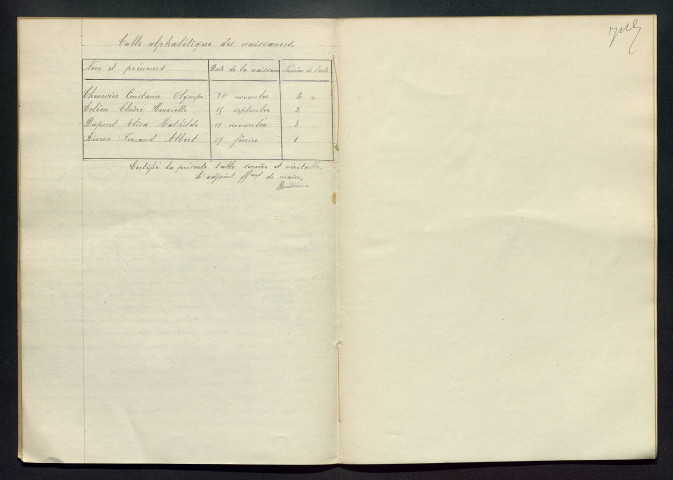 Table alphabétique des naissances.
Nom et prénoms Date de la naissance Numéro de l'acte
Constance Olympe 20 novembre 4
Célien Claire Henriette 15 septembre 2
Dupont Elisa Mathilde 11 novembre 3
Fernand Albert 17 février 1
Certifié la présente table sincère et véritable.
L'adjoint ff.ons de maire,